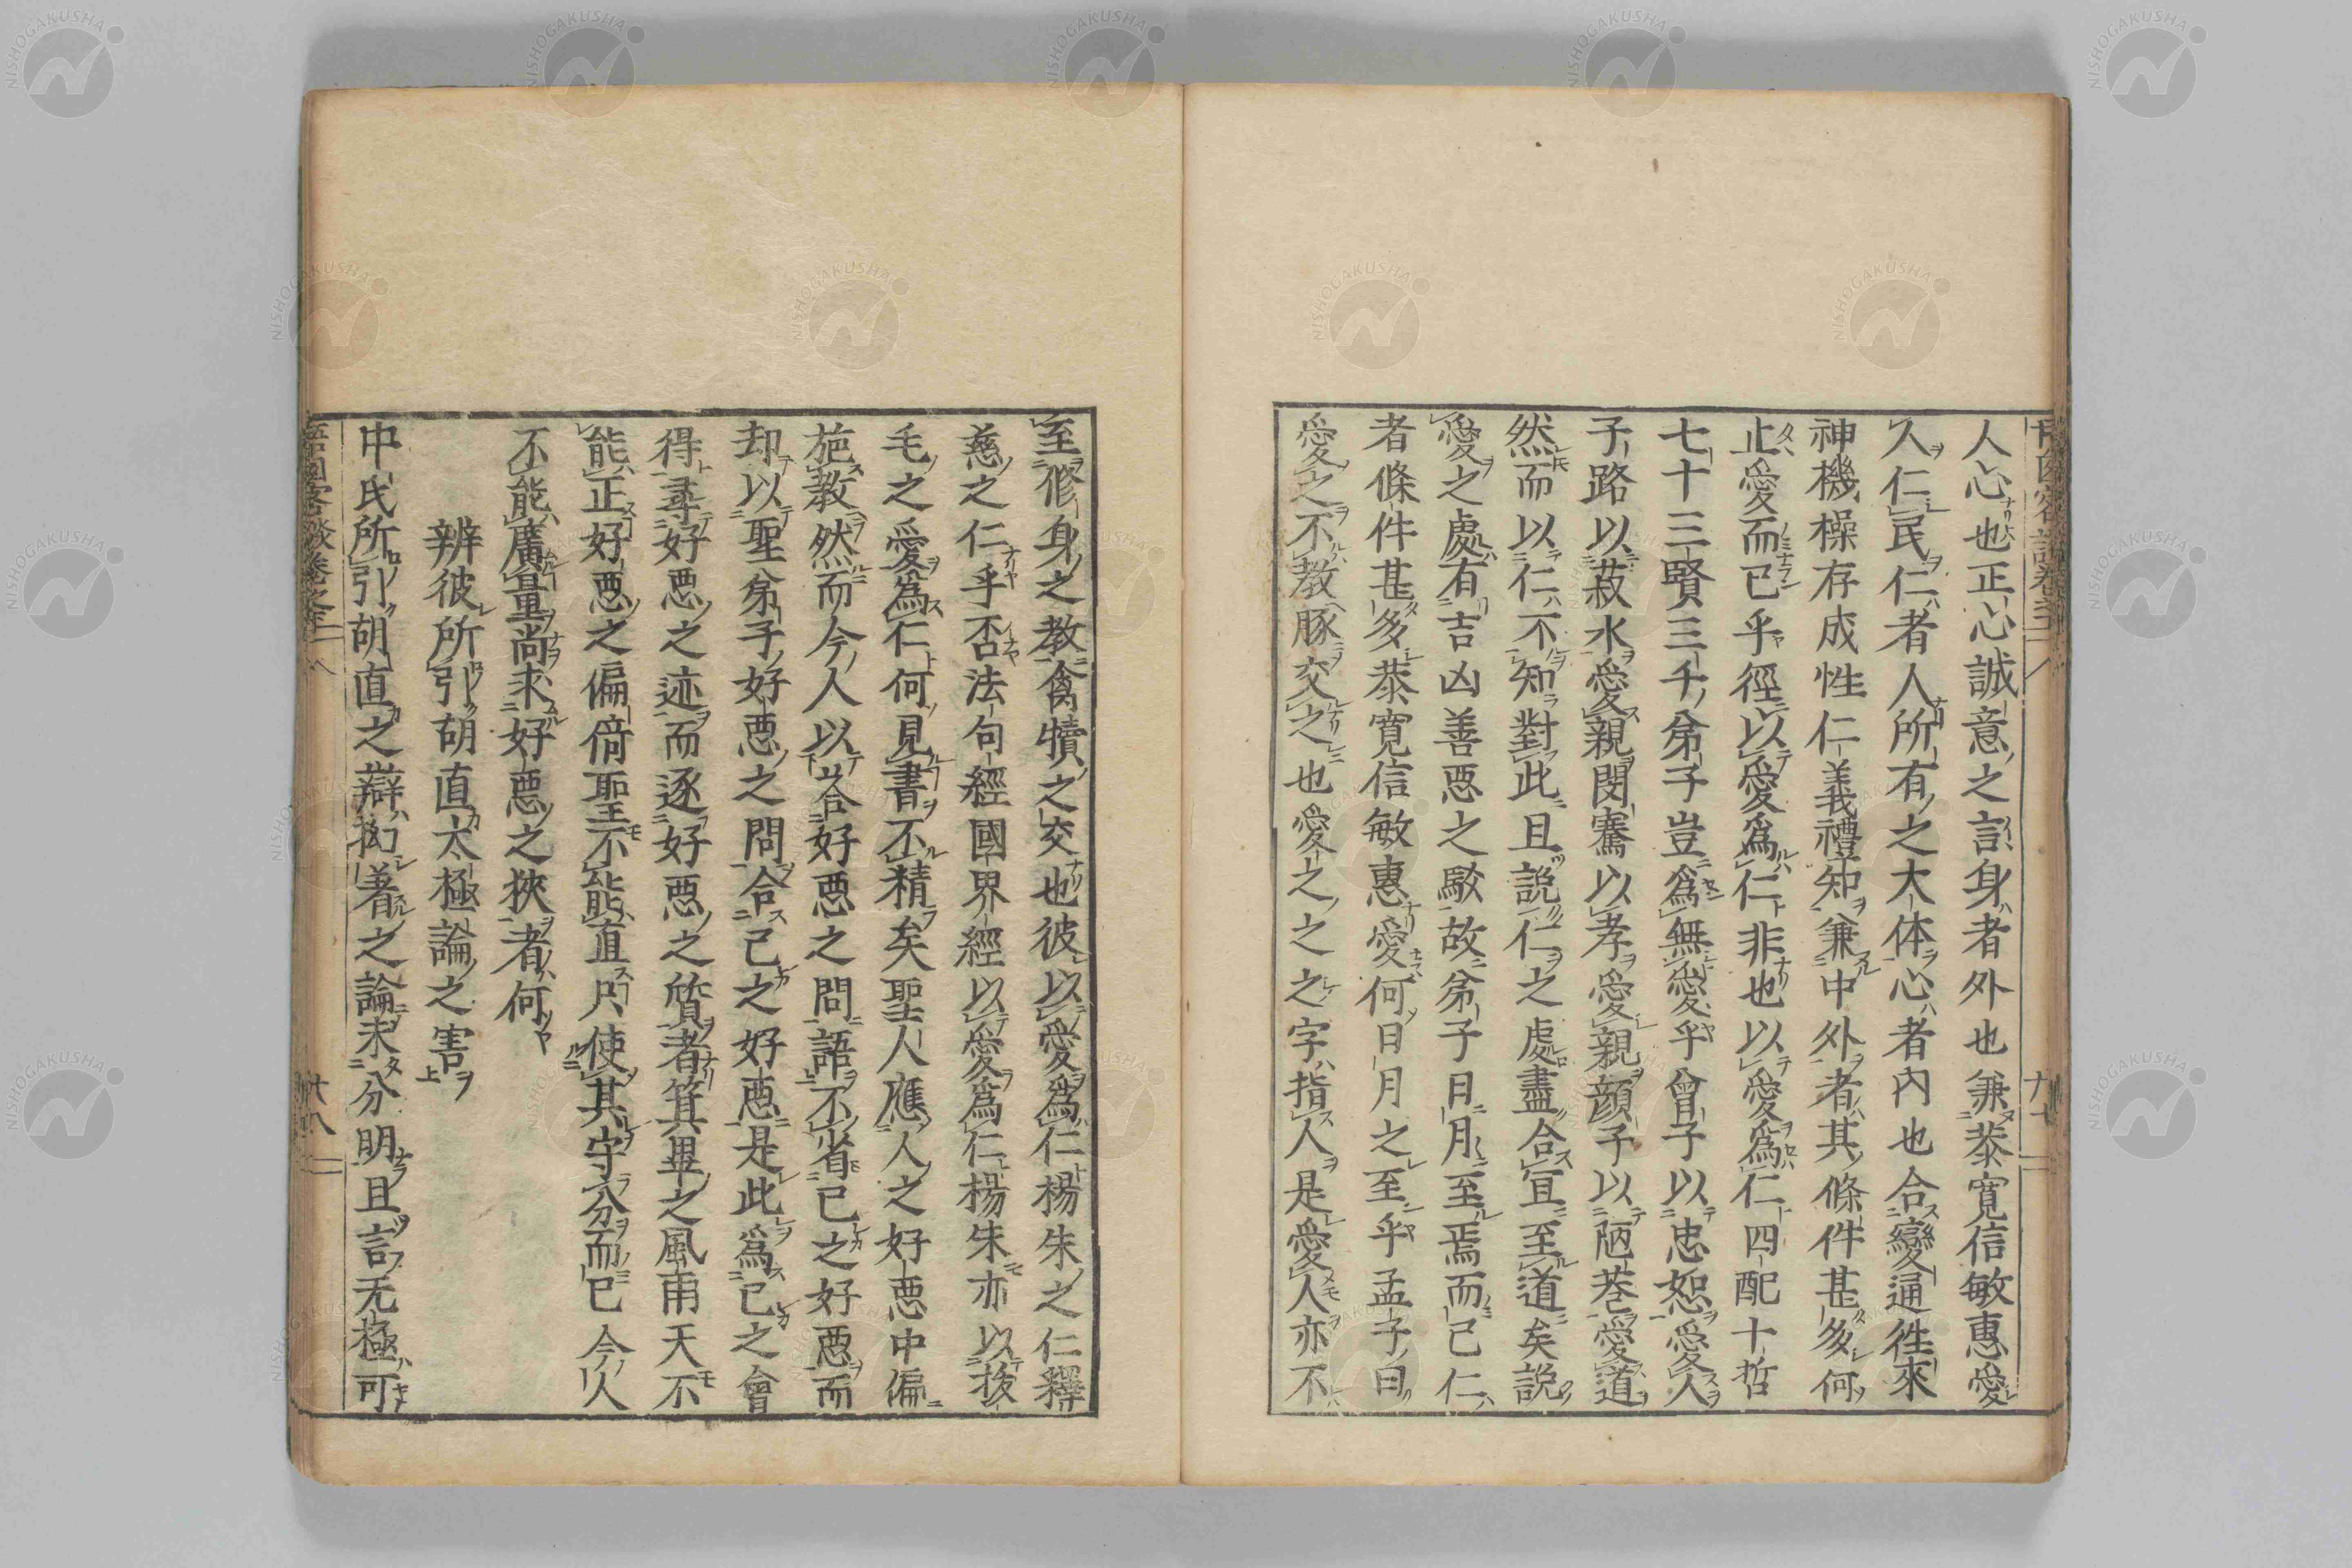 人心也正心誠意之言身者外也兼恭寛信敏惠愛
人仁民仁者人所有之大体心者内也合變通徃來
神機操存成性仁義禮知兼中外者其條件甚多何
止愛而已乎徑以愛爲仁非也以愛爲仁四配十哲
七十三賢三千弟子豈爲無愛乎曾子以忠恕愛人
子路以菽水愛親閔騫以孝愛親顔子以陋巷愛道
然而以仁不知對此且説仁之處盡合宜至道矣説
愛之處有吉凶善惡之駁故弟子日月至焉而已仁
者條件甚多恭寛信敏惠愛何日月之至乎孟子曰
愛之不教豚交之也愛之之之字指人是愛人亦不
至修身之教禽犢之交也彼以愛爲仁楊朱之仁釋
慈之仁乎否法句經國界經以愛爲仁楊朱亦以拔
毛之愛爲仁何見書不精矣聖人應人之好惡中偏
施教然而今人以答好惡之問語不省己之好惡而
却以聖弟子好惡之問合己之好惡是此爲己之會
得尋好惡之迹而逐好惡之質者箕畢之風雨天不
能正好惡之偏倚聖不能直只使其守分而已今人
不能廣量尚求好惡之狹者何
辨彼所引胡直太極論之害
中氏所引胡直之辯拘著之論未分明且言无極可
十八
NISHOGAKUSHA